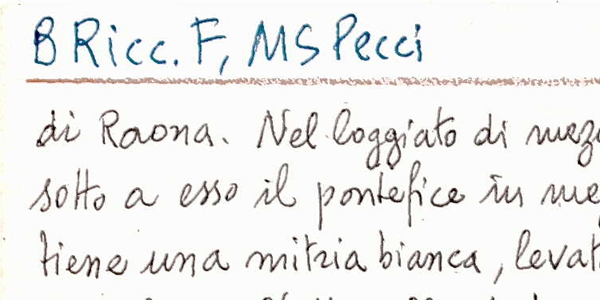 B Ricc. F, MS Pecci
di Raona. Nel loggiato di mezz
sotto a esso il pontefice in me
tiene una mitria bianca, levat